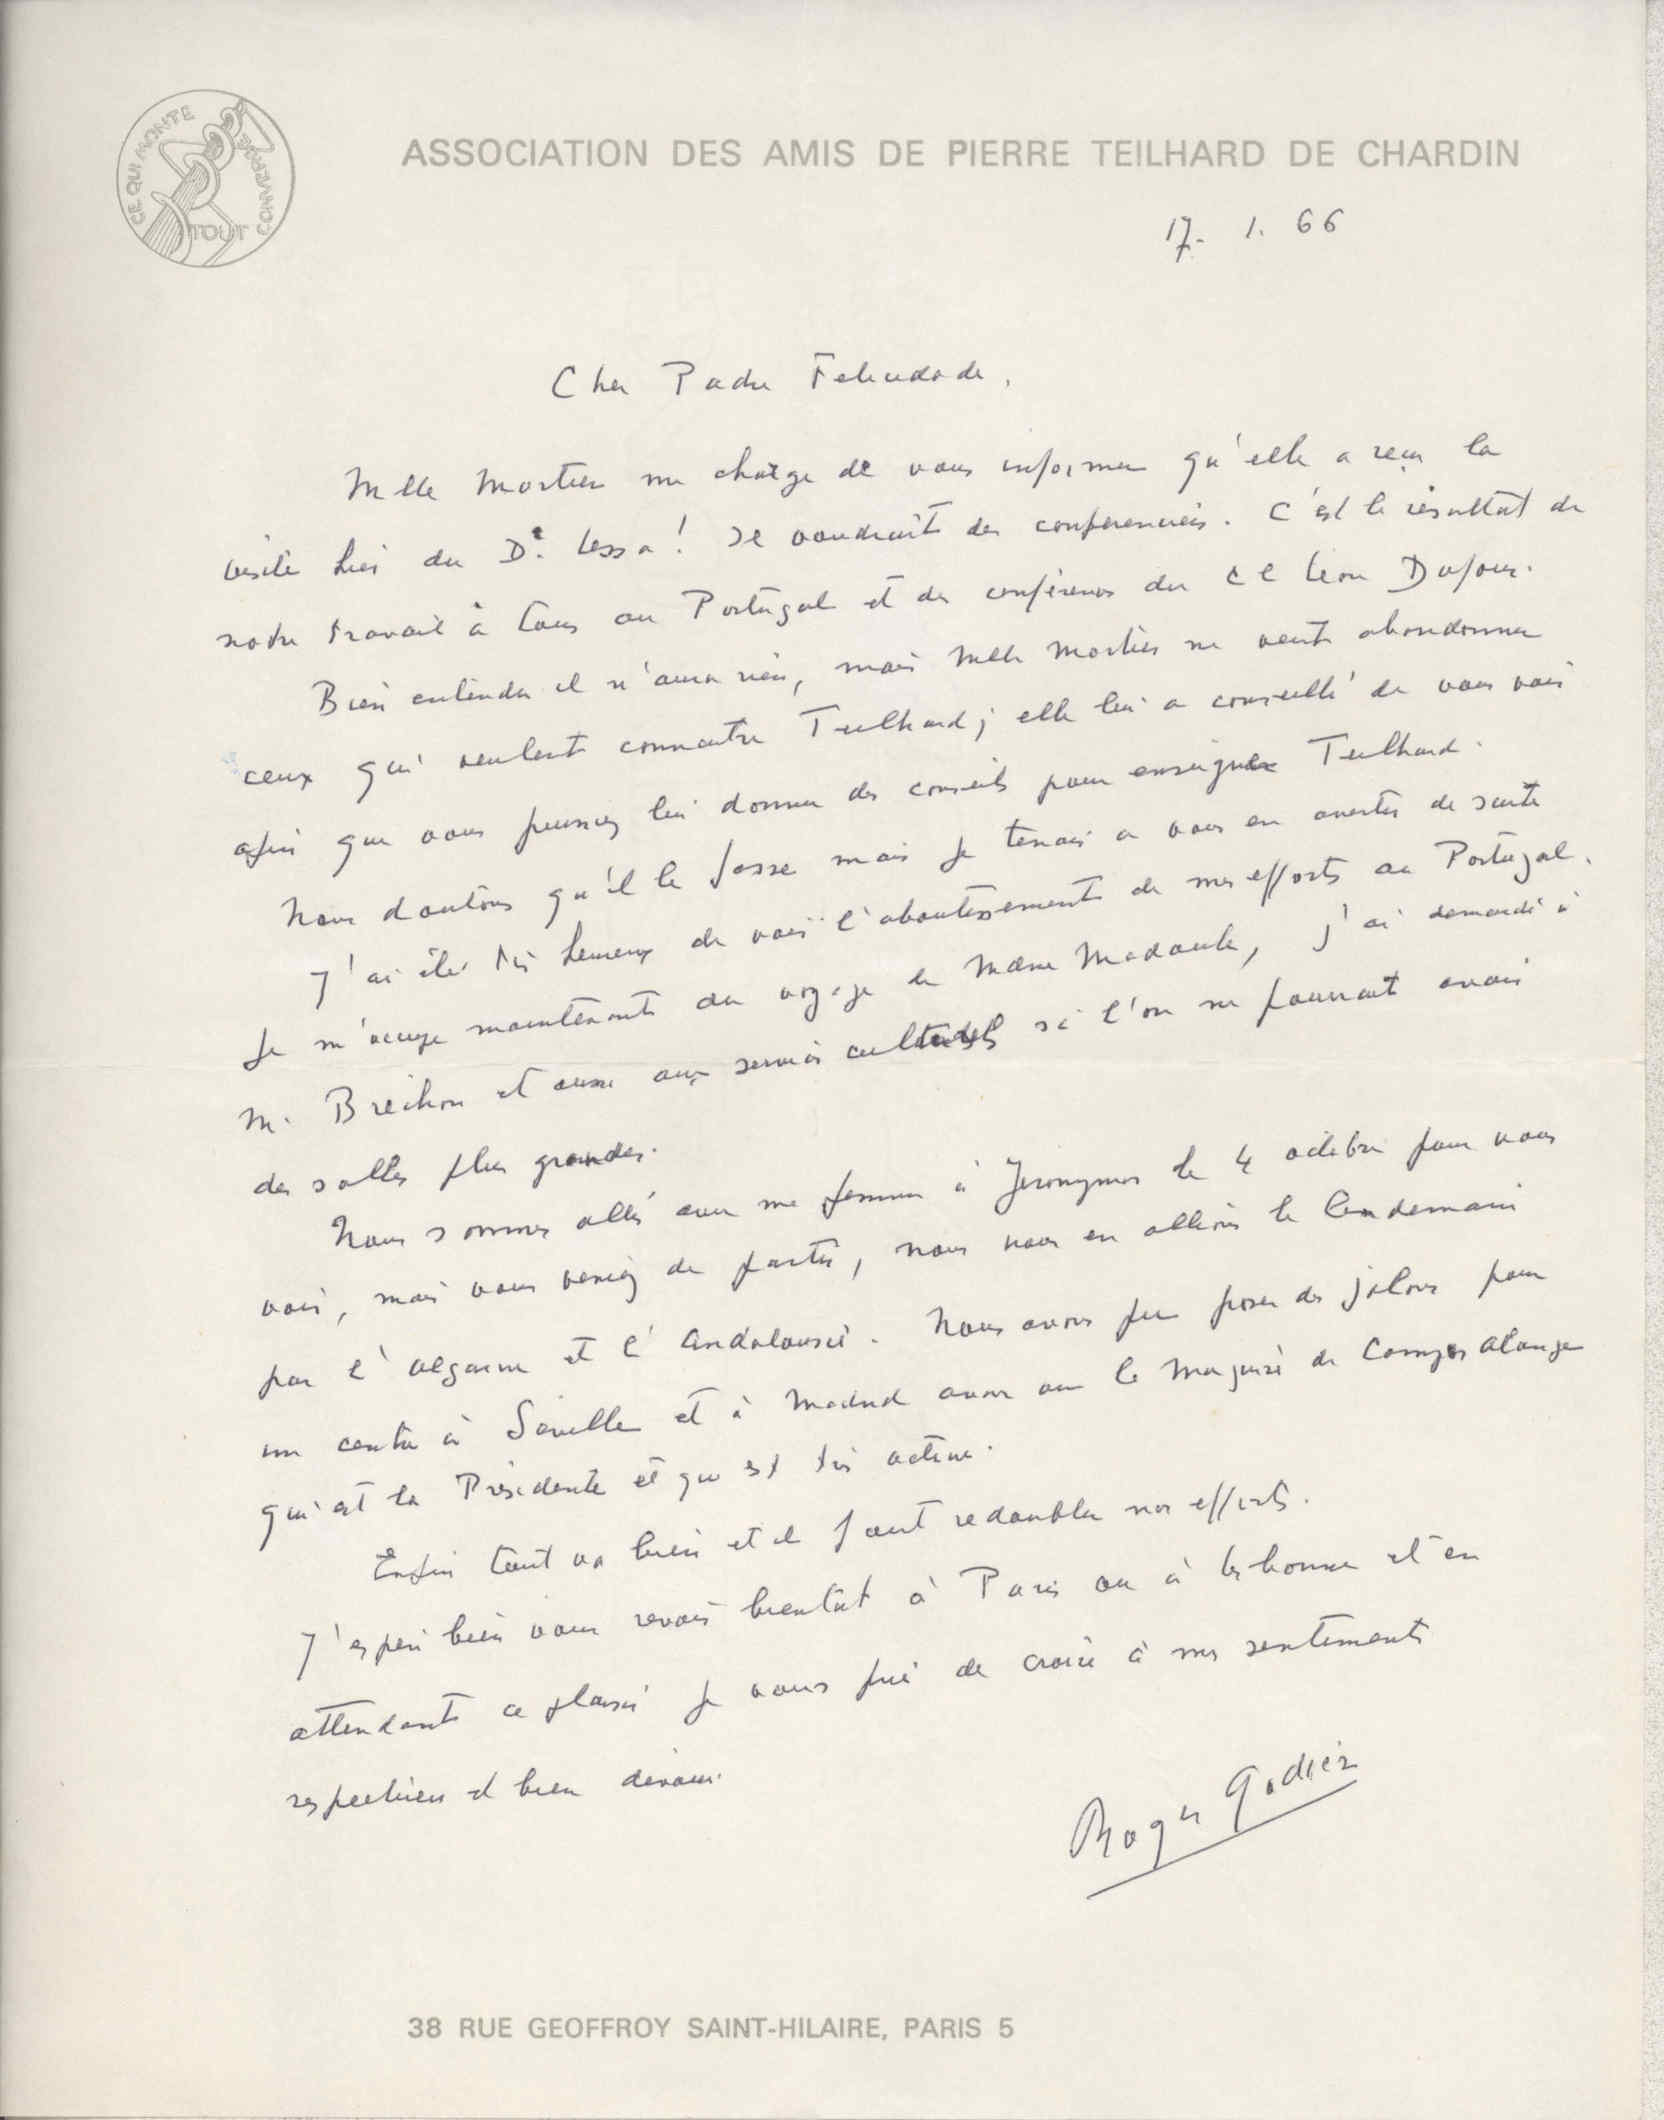 CE QUI MONTE
CONVERGE
TOUT
ASSOCIATION DES AMIS DE PIERRE TEILHARD DE CHARDIN
17. 1. 66
Cher Padre Felicidade,
Melle Mortier me charge de vous informer qu'elle a reçu la
visite hier du Dr. Lessa! Il voudrait des conférenciers. C'est le résultat de
notre travail à tous au Portugal et des conférences du Cl Léon Dufour.
Bien entendu il n'aura rien, mais Melle Mortier ne veut abandonner
ceux qui veulent connaître Teilhard; elle lui a conseillé de vous voir
afin que vous puissiez lui donner des conseils pour enseigner Teilhard.
Nous doutons qu'il le fasse mais je tenais à vous en avertir de suite
J'ai été très heureux de voir l'aboutissement de mes efforts au Portugal.
Je m'occupe maintenant du voyage de Mme Madaule, j'ai demandé à
M. Bréchon et aussi aux services culturels si l'on ne pourrait avoir
des salles plus grandes.
Nous sommes allés avec ma femme à Jeronymos le 4 octobre pour vous
voir, mais vous veniez de partir, nous nous en allions le lendemain
par l'Algarve et l'Andalousie. Nous avons pu poser des jalons pour
un centre à Séville et à Madrid avons vu la Marquise de Campo Alange
qui est la Présidente et qui est très active.
Enfin tout va bien et il faut redoubler nos efforts.
J'espère bien vous revoir bientôt à Paris ou à Lisbonne et en
attendant ce plaisir je vous prie de croire à mes sentiments
respectueux et bien dévoués.
Roger Godier
38 RUE GEOFFROY SAINT-HILAIRE, PARIS 5